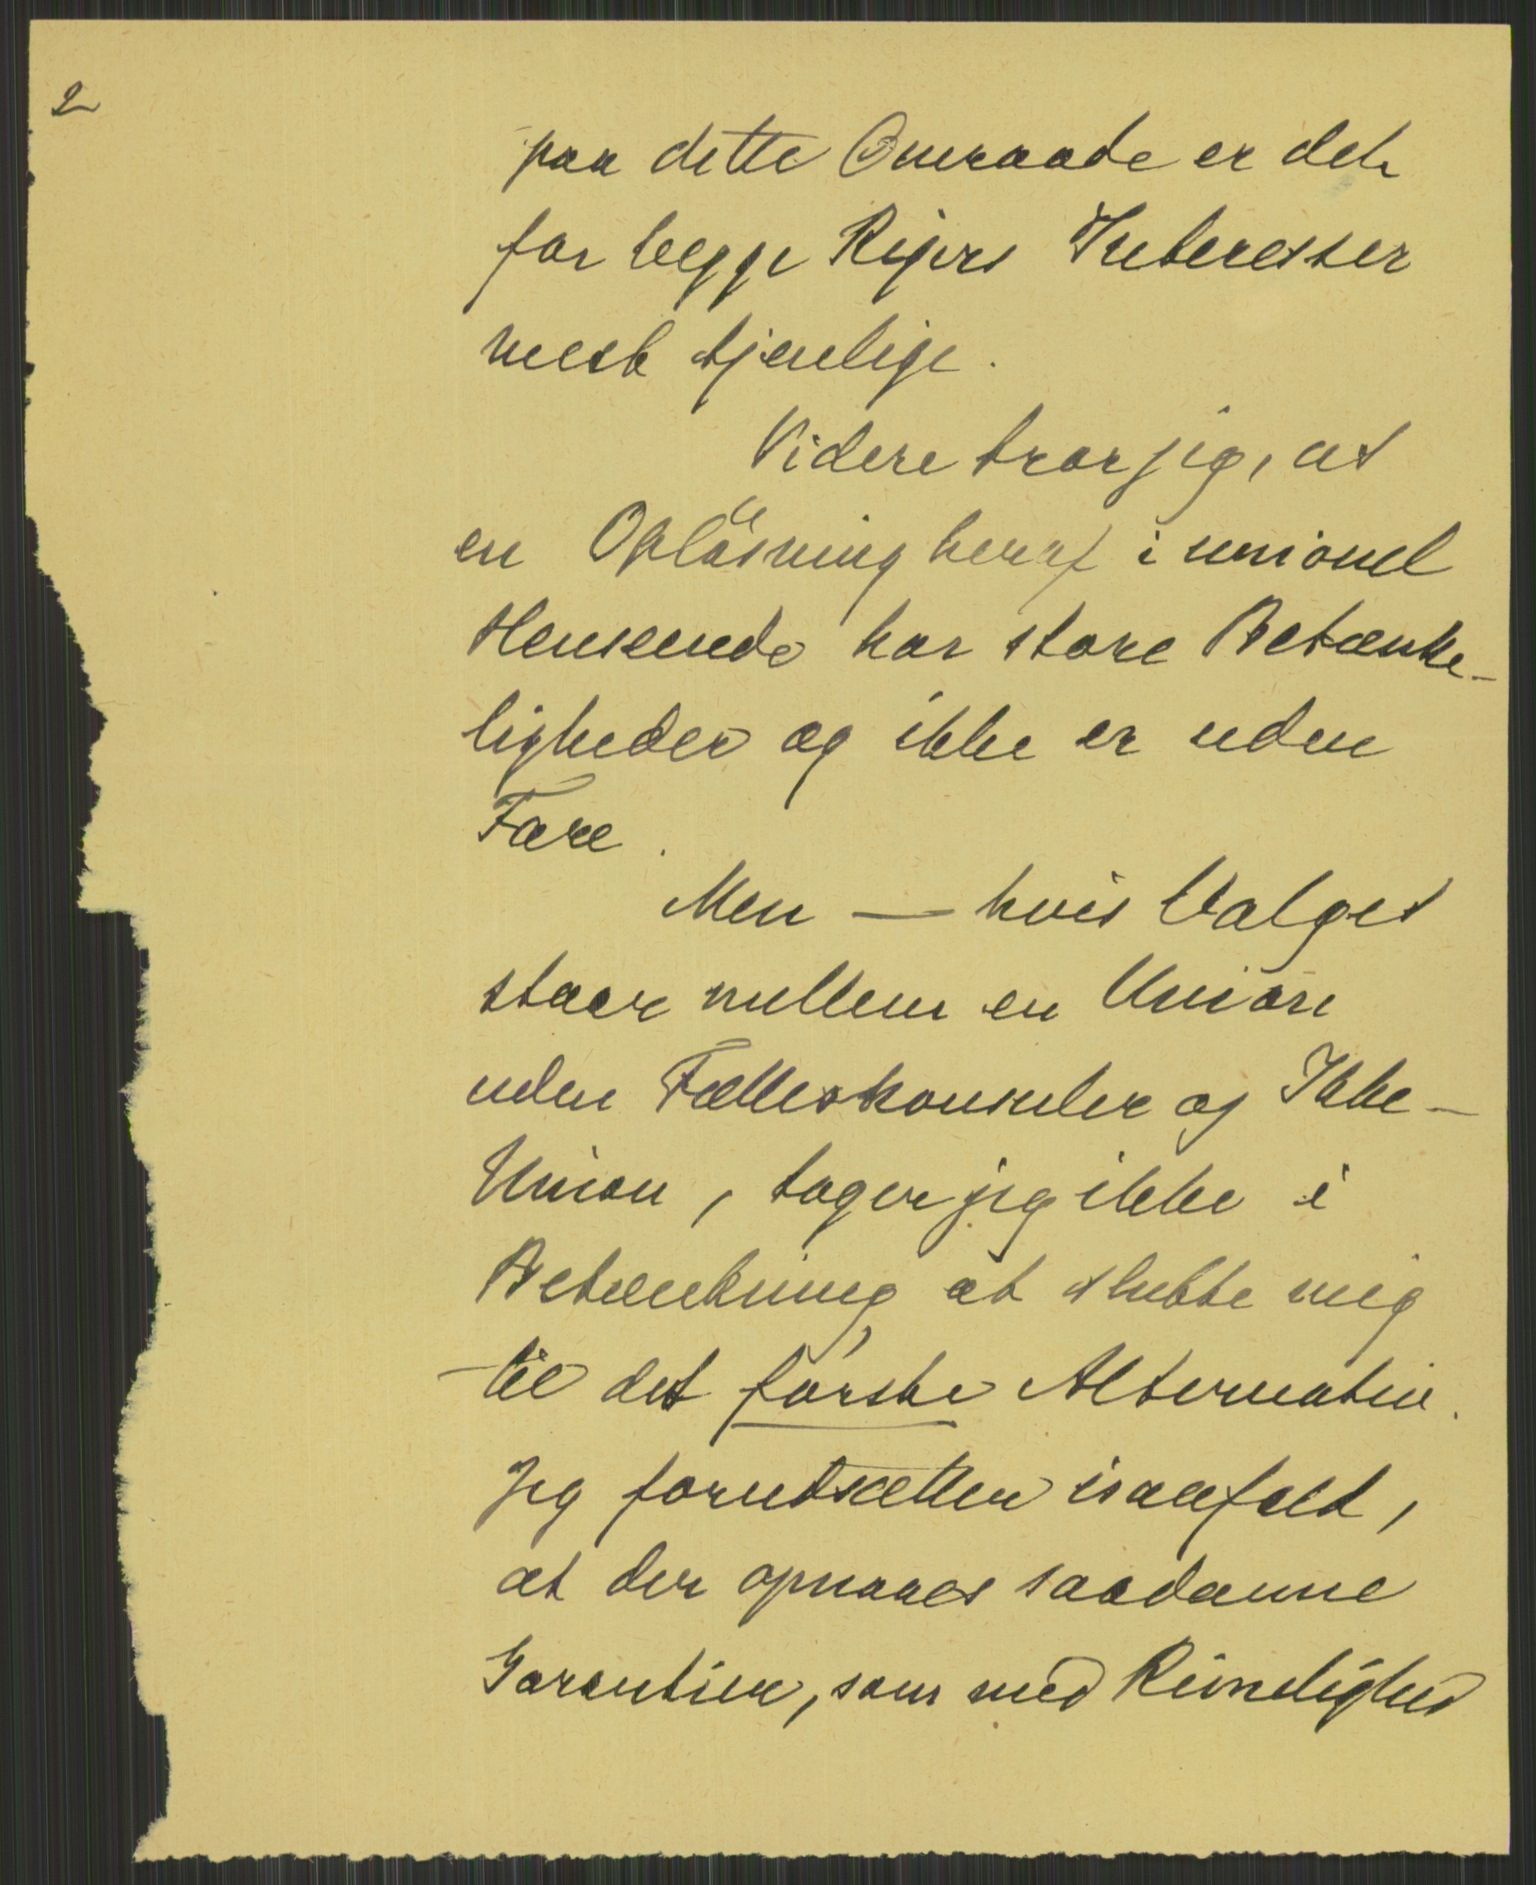 2
paa dette Omraade er det
for begge Rigers Interesser
mest tjenlige.
Videre tror jeg, at
en Opløsning heraf i unionel
Henseende har store Betænke-
ligheder og ikke er uden
Fare.
Men — hvis Valget
staar mellem en Union
uden Fælleskonsuler og Ikke-
Union, tager jeg ikke i
Betænkning at slutte mig
til det første Alternativ.
Jeg forudsætter isaafald,
at der opnaaes saadanne
Garantier, som med Rimelighed